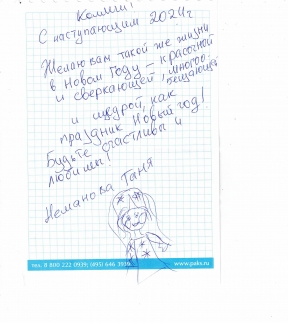 Коллеги!
С наступающим 2024г
Желаю вам такой же жизни
в Новом Году – красочной
и сверкающей, многообещающей
и щедрой, как
праздник Новый год!
Будьте счастливы и
любимы!
Неманова Таня
тел. 8 800 222 0939; (495) 646 3939
www.paks.ru